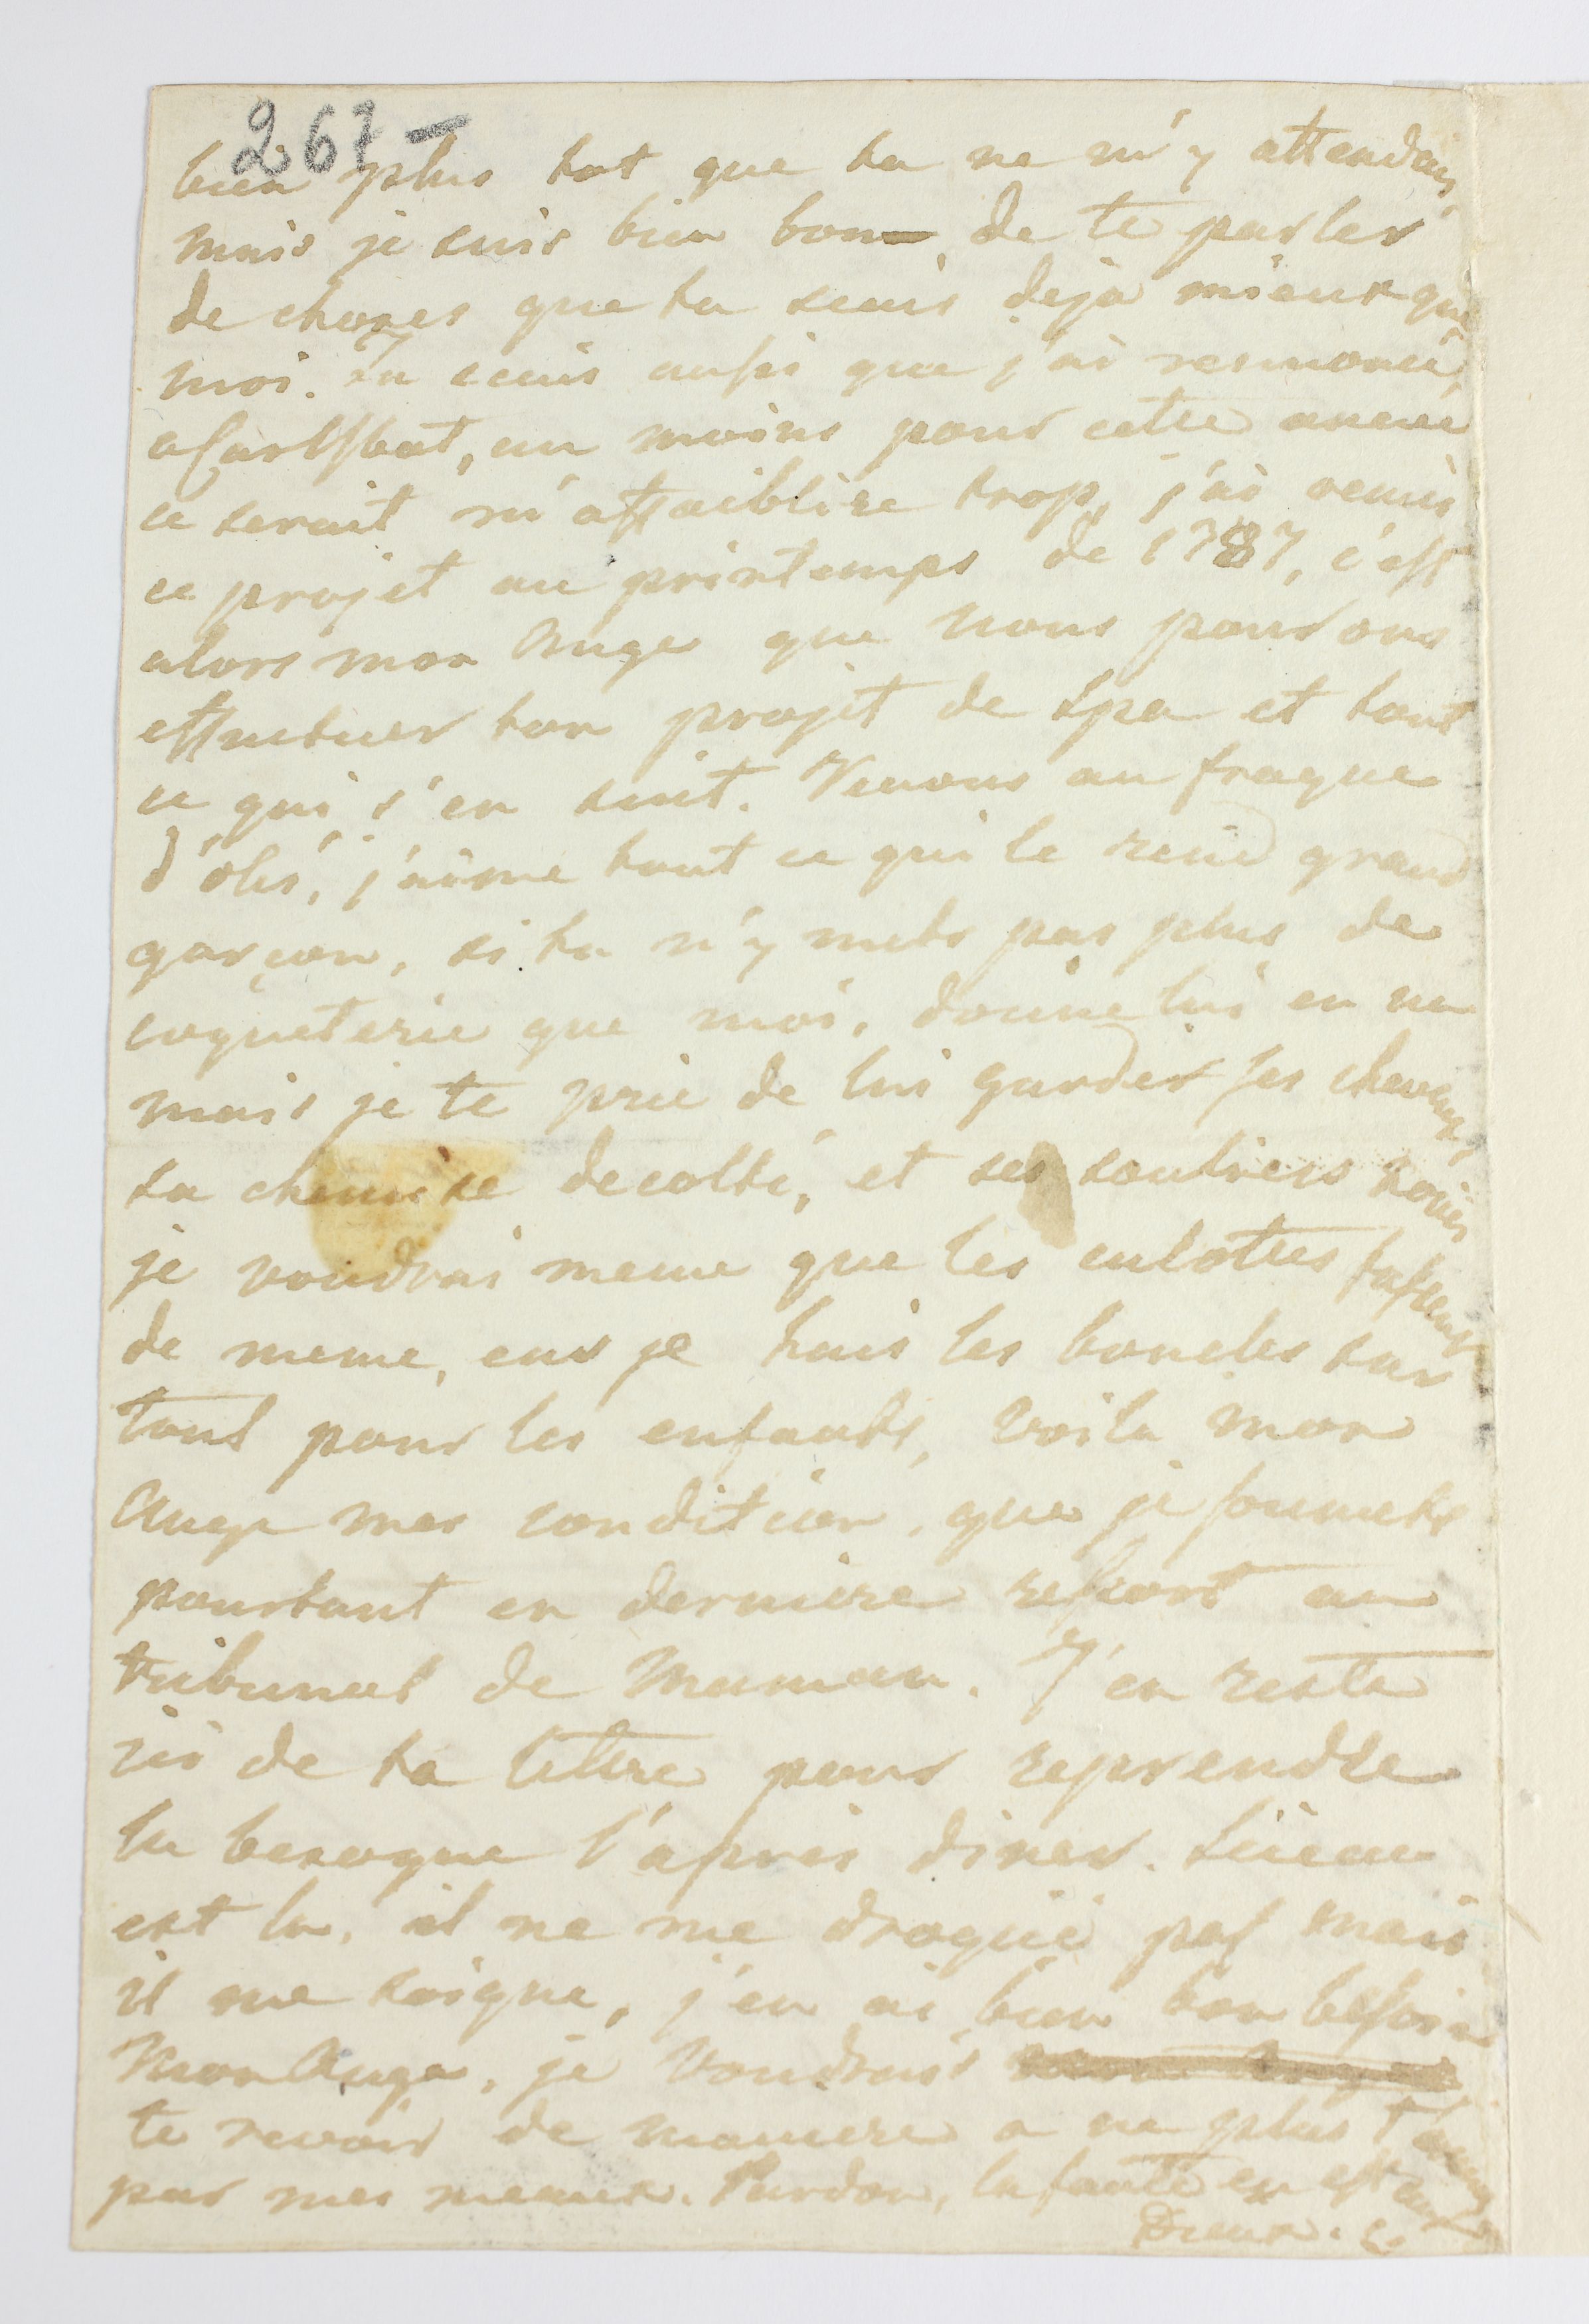 267 -
bien plus tot que tu ne m'y attendais,
mais je suis bien bon de te parler
de choses que tu scais deja mieux que
moi. Tu scais aussi que j'ai rennoncé,
a Carlsbat, au moins pour cette année
ce serait m'affaiblire trop, j'ai remis
ce projet au printemps de 1787, c'est
alors mon Ange que nous pourons
effectuer ton projet de Spa et tout
ce qui s'en suit. Venons au fraque
d'olis, j'aime tout ce qui le rend grand
garçon, si tu n'y mets pas plus de
coqueterie que moi, donne lui en un
mais je te prie de lui garder ses cheveux,
sa chemise decolté, et ses souliers
je voudrai meme que les culottes fussent
de meme, car je hais les boucles sur
tout pour les enfants, voila mon
Ange mes condition, que je soumets
pourtant en derniere ressort au
tribunal de Maman. J'en reste
ici de ta lettre pour reprendre
la besogne l'apres diner.
est la, il ne me drogue pas mais
il me soigne, j'en ai bien bon besoin
Mon Ange, je voudrais
te revoir de maniere a ne plus
par mes meaux. Pardon, la faute en est aux
Dieux.